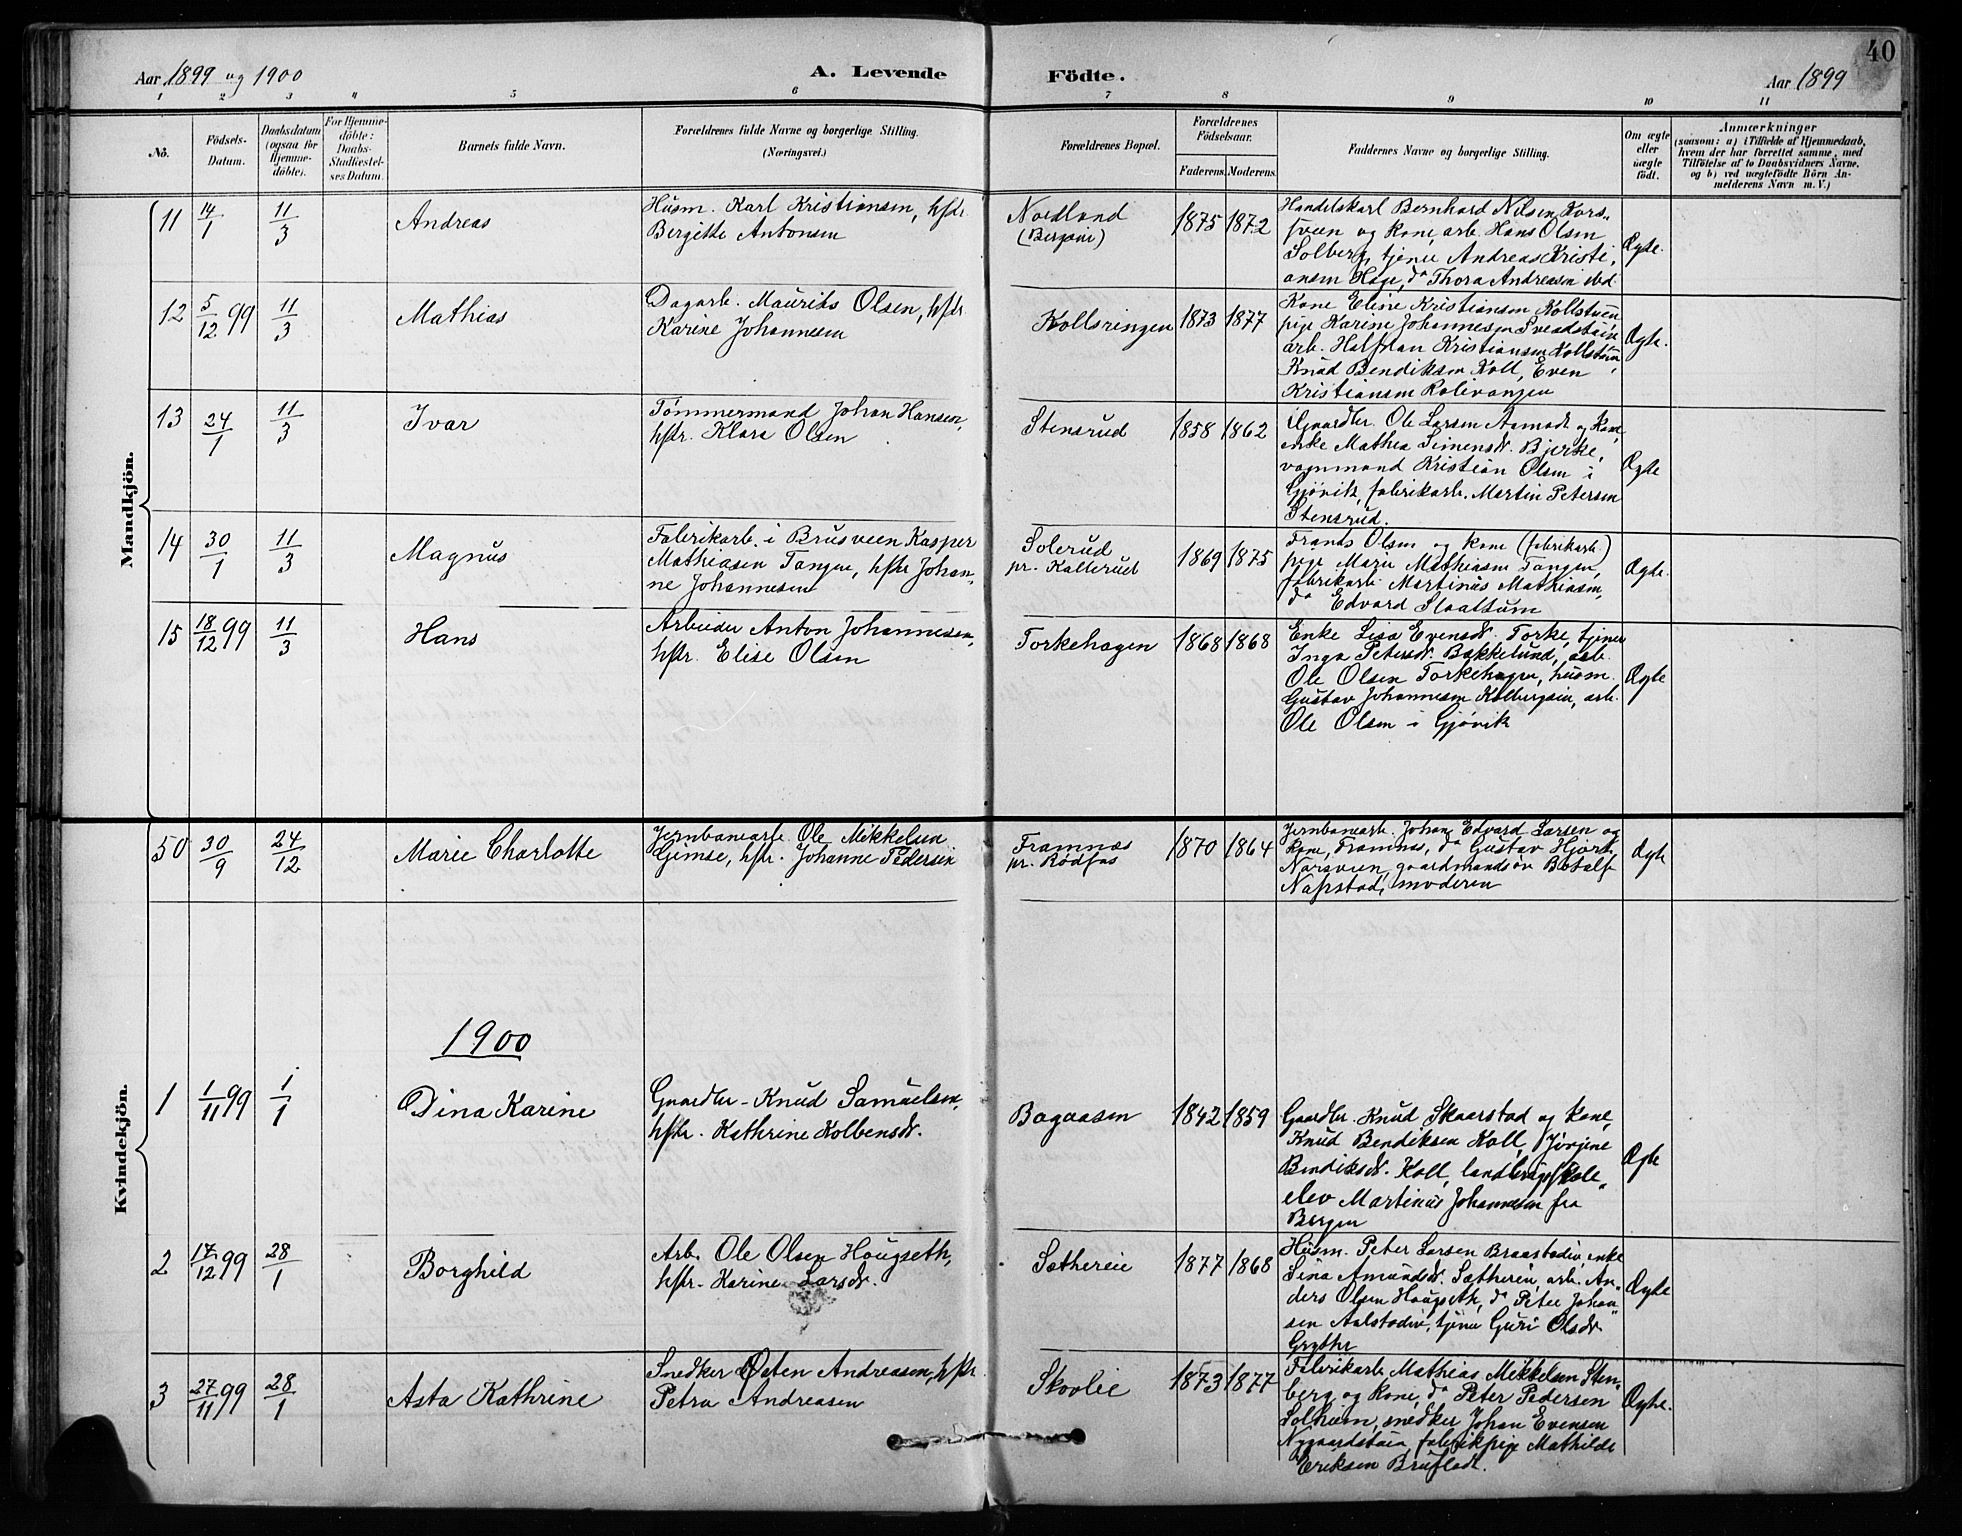 40
Aar 1899 og 1900
A. Levende
Födte.
Aar 1899
1 2 3 4 5 6 7 8 9 10 11
No.
Födsels-
Datum.
Daabsdatum
(ogsaa for
Hjemme-
döbte).
For Hjemme-
döbte:
Daabs-
Stadfæstel-
ses Datum.
Barnets fulde Navn.
Forældrenes fulde Navne og borgerlige Stilling.
(Næringsvei.)
Forældrenes Bopæl.
Forældrenes
Födselsaar.
Faderens. Moderens.
Faddernes Navne og borgerlige Stilling.
Om ægte
eller
uægte
födt.
Anmærkninger
(saasom: a) i Tilfælde af Hjemmedaab,
hvem der har forrettet samme, med
Tilföielse af to Daabsvidners Navne,
og b) ved uægtefödte Börn An-
melderens Navn m. V.)
Mandkjön.
11
14/1
11/3
Andreas
Husm. Karl Kristiansen, hstr.
Bergitte Antonsen
Nordland
1875 1872
Handelskarl Bernhard Nilsen Kors-
sveen og kone, arb. Hans Olsen
Solberg, tjener Andreas Kristi-
ansen Hage, do Thora Andreasen ibd.
Ægte.
12
5/12 99
11/3
Mathias
Dagarb. Maurits Olsen, hstr.
Karine Johannesen
Kollsringen
1873 1877
Kone Eline Kristiansen Kollstuen
pige Karine Johannesen
arb. Halfdan Kristiansen Kollstuen
Knud Bendiksen Koll, Even
Kristiansen Rolivangen
Ægte.
13
24/1
11/3
Ivar
Tømmermand Johan Hansen,
hstr. Klara Olsen
Stensrud
1858 1862
Gaardbr. Ole Larsen Aamodt og kone,
enke Mathea Simensdr. Bjerke,
vognmand Kristian Olsen i
Gjøvik, fabrikarb. Martin Petersen
Stensrud.
Ægte
14
30/1
11/3
Magnus
Fabrikarb. i Brusveen Kasper
Mathiasen Tangen, hstr Johan-
ne Johannesen
Solerud
pr. Kallerud
1869 1875
Frants Olsen og kone (fabrikarb.)
pige Marie Mathiasen Tangen,
fabrikarb. Martinus Mathiasen,
do Edvard Slaatsum
Ægte.
15
18/12 99
11/3
Hans
Arbeider Anton Johannesen,
hstr. Elise Olsen
Torkehagen
1868 1868
Enke Lisa Evensdr. Torke, tjener
Inga Petersdr. Bakkelund, arb.
Ole Olsen Torkehagen, husm.
Gustav Johannesen Kolbergseie, arb.
Ole Olsen i Gjøvik
Ægte
Kvindekjön.
50
30/9
24/12
Marie Charlotte
Jernbanearb. Ole Mikkelsen
Gimse, hstr. Johanne Pedersen
Framnæs
pr. Rødfos
1870 1864
Jernbanearb. Johan Edvard Larsen og
kone, Framnæs, do Gustav Hjort
Narsveen, gaardmandssøn Botolf
Napstad, moderen
Ægte
1900
1
1/11 99
1/1
Dina Karine
Gaardbr. Knud Samuelsen,
hstr. Kathrine Kolbensdr.
Bagaasen
1842 1859
Gaardbr. Knud Skaarstad og kone,
Knud Bendiksen Koll, Jørgine
Bendiksdr. Koll, landbrugsskole-
elev Martinus Johannesen fra
Bergen
Ægte
2
17/12 99
28/1
Borghild
Arb. Ole Olsen Hougseth,
hstr. Karine Larsdr.
Sæthereie
1877 1868
Husm. Peter Larsen Braastadeie, enke
Lina Amundsdr. Sætherei, arb. An-
ders Olsen Hougseth, do Peter Johan-
sen Aalstadeie, tjener Guri Olsdr
Grythe
Ægte
3
27/11 99
28/1
Asta Kathrine
Snedker Østen Andreasen, hstr.
Petra Andreasen
Skovlie
1873 1877
Fabrikarb. Mathias Mikkelsen Sten-
berg og kone, do Peter Pedersen
Solheim, snedker Johan Evensen
Nygaardstuen, fabrikpige Mathilde
Eriksen Bruflodt.
Ægte.